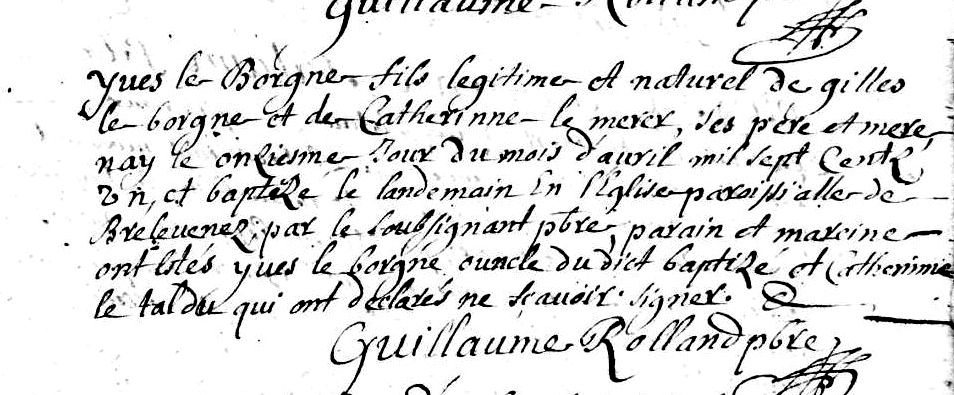 Guillaume Rolland
yves le Borgne fils legitime et naturel de gilles
le borgne et de Catherinne le merer, ses pere et mere
nay le onziesme Jour du mois d'auril mil sept Centz
vn, et baptizé le landemain En l'Eglise paroissialle de
Brelevenez, par le soubsignant pbre, parain et mareine
ont Estés yves le borgne ouncle du dict baptizé et Catherinne
le taldu qui ont declarés ne sçavoir signer.
Guillaume Rolland pbre